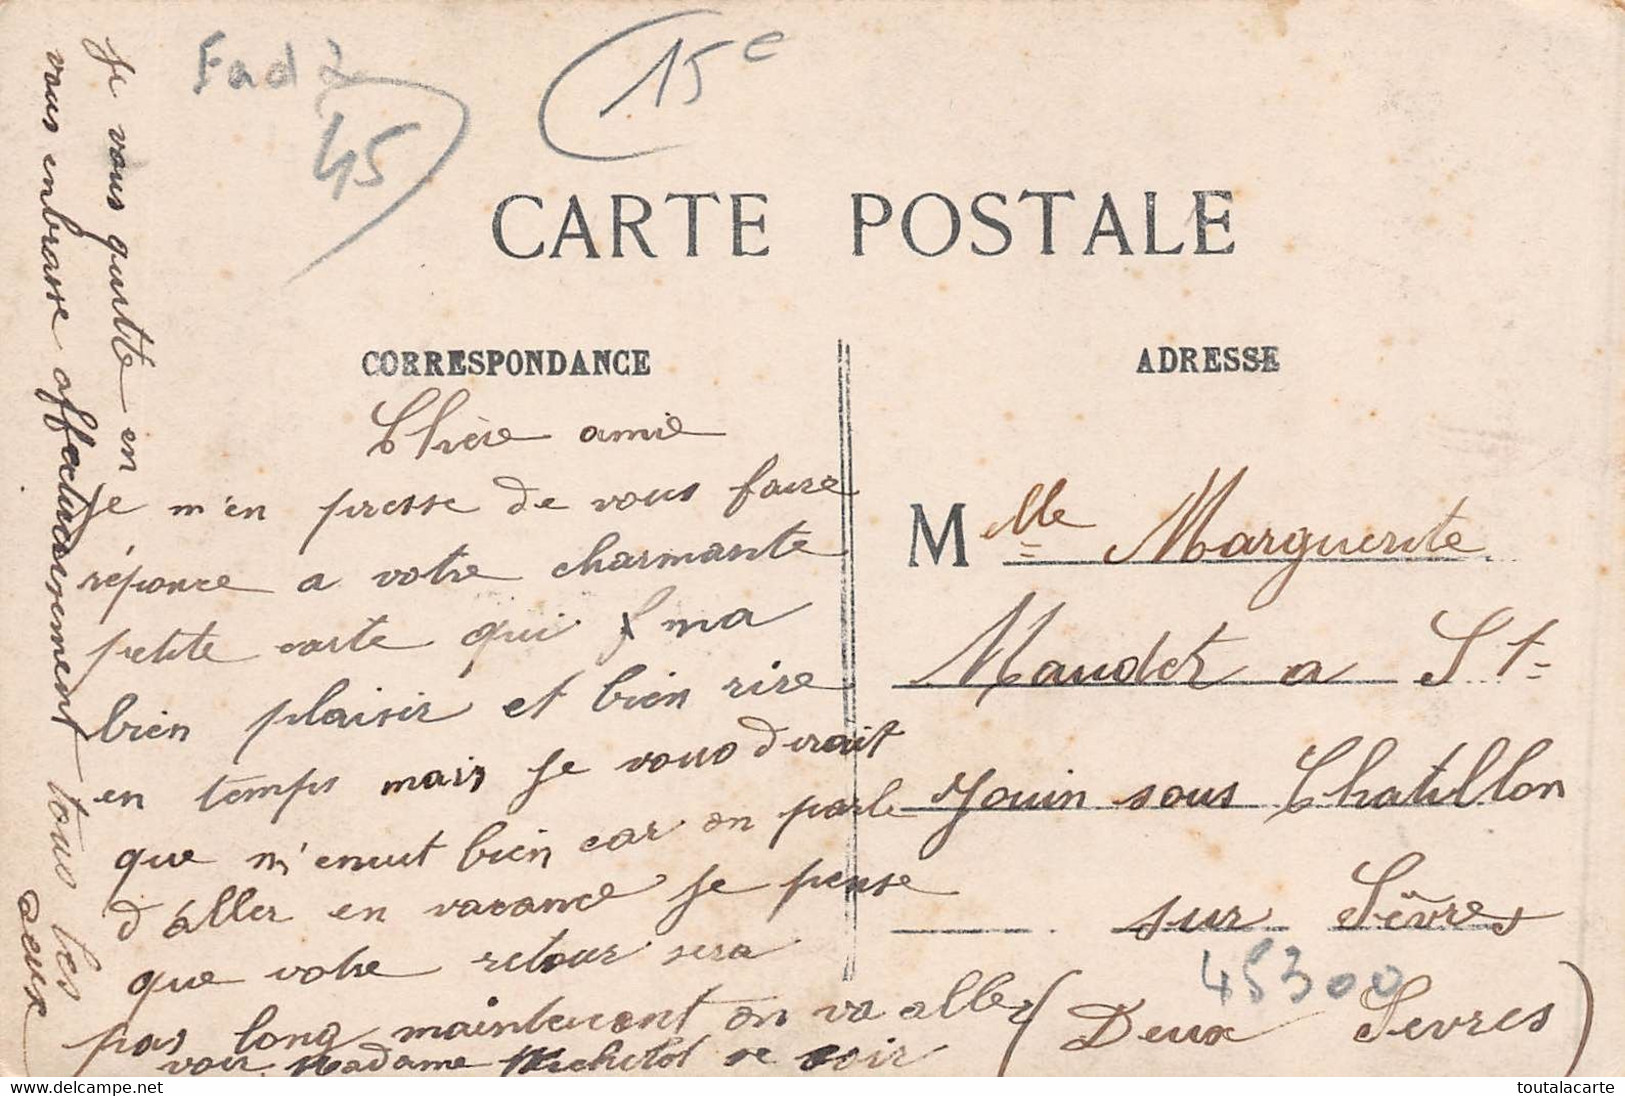 Fad 2
45
15 e
CARTE POSTALE
CORRESPONDANCE
Chère amie
Je m'en presse de vous faire
réponce a votre charmante
petite carte qui f ma
bien plaisir et bien rire
en temps mais je vous dirait
que m'enuit bien car on parle
d'áller en vacance je pense
que votre retour sera
pas long maintenent on va aller
voir Madame Michelot se soir
Je vous quitte en
vous enbrasse affectueusement tous les
deux
ADRESSE
Mlle Marguerite
Maudet a St
Jouin sous Chatillon
sur Sêvres
45300
(Deux Sevres)
delcampe.net
toutalacarte